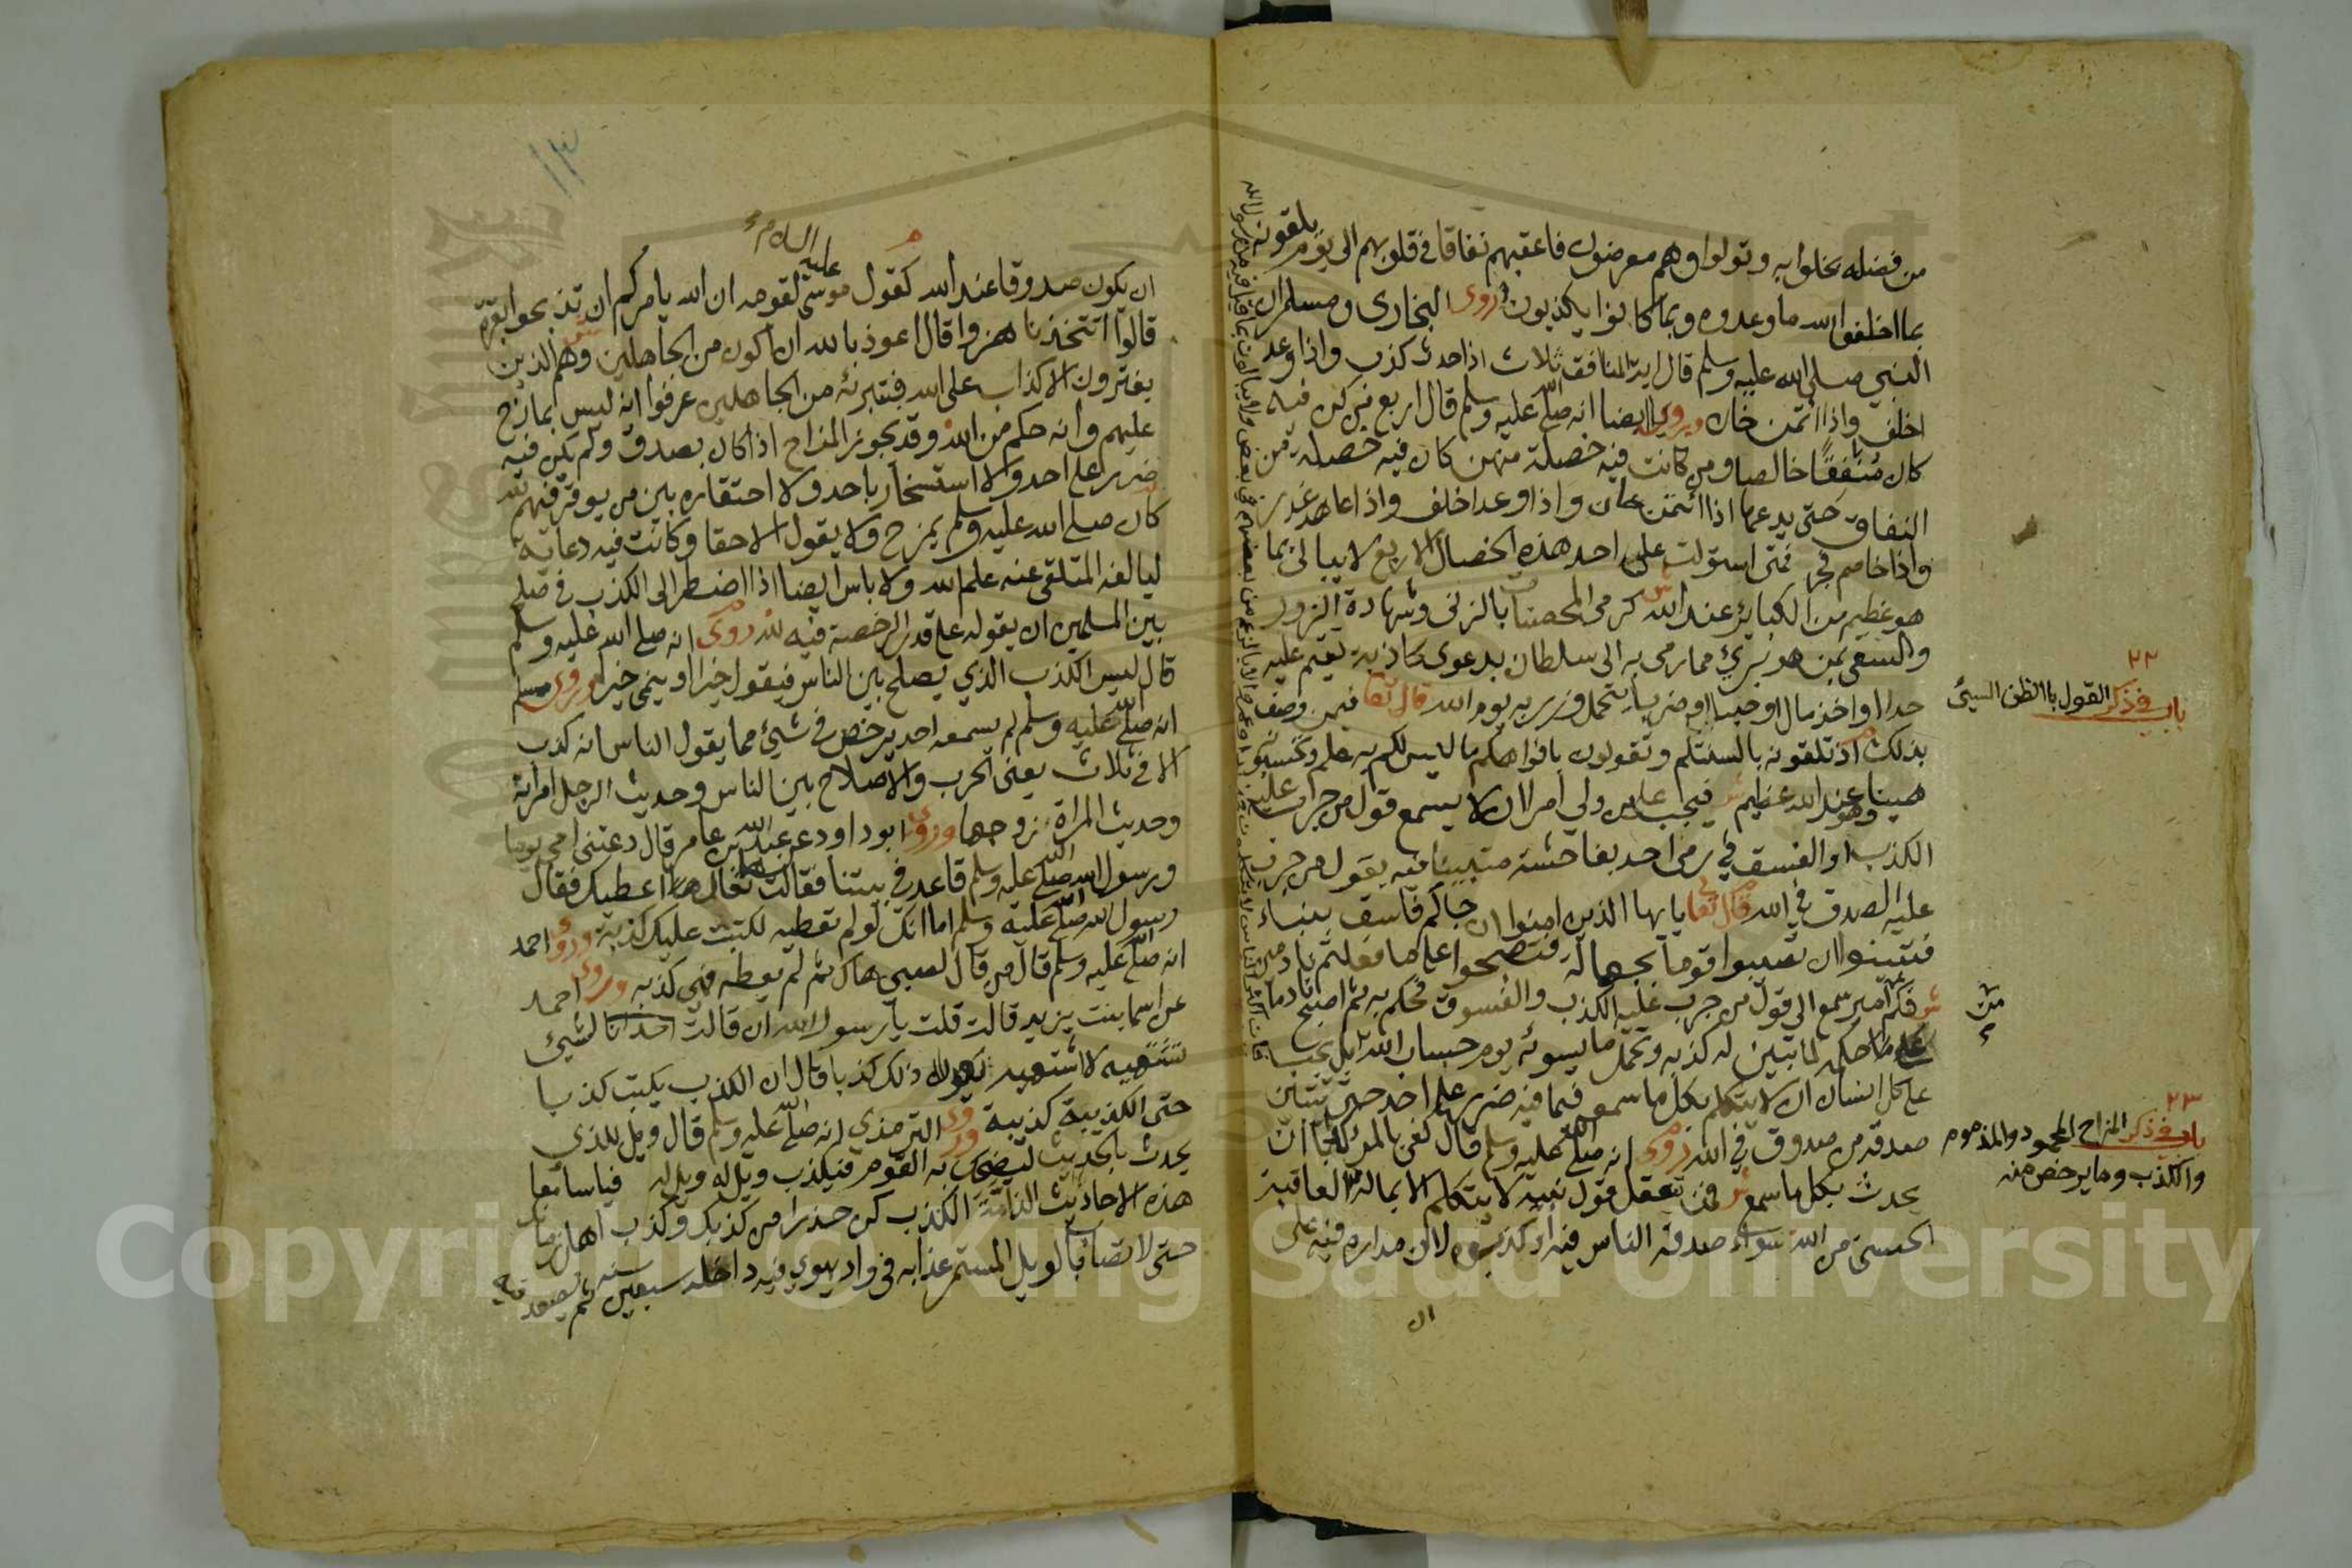 من فضله بخلوا به وتولوا وهم معرضون فاعقبهم نفاقا في قلوبهم الى يوم يلقونه
بما اخلفوا الله ما وعدوه وبما كانوا يكذبون روى البخارى ومسلم ان
النبي صلى الله عليه وسلم قال اية المنافق ثلاث اذا حدث كذب واذا وعد
اخلف واذا ائتمن خان وروي ايضا انه صلى الله عليه وسلم قال اربع من كن فيه
كان منافقا خالصا ومن كانت فيه خصلة منهن كان فيه خصلة من
النفاق حتى يدعها اذا ائتمن خان واذا وعد اخلف واذا عاهد غدر
واذا خاصم فجر فمتى استولت على احد هذه الخصال الاربع لا يبالى بما
هو عظيم من الكبائر عند الله كرمي المحصنات بالزنى وشهادة الزور
والسعى بمن هو بريئ مما رمى به الى سلطان بدعوى كاذبة تقيم عليه
حدا او اخذ مال او حبسا او ضربا يتحمل وزره يوم الله قال تعا فيمن وصف
بذلك اذ تلقونه بالسنتكم وتقولون بافواهكم ما ليس لكم به علم وتحسبونه
هينا وهو عند الله عظيم فيجب على من ولي امرا ان لا يسمع قول من جرب عليه
الكذب او الفسق في رمى احد بفاحشة متبينا فيه يقول من جرب
عليه الصدق في الله قال تعالى يايها الذين امنوا ان جاكم فاسق بنباء
فتبينوا ان تصيبوا قوما بجهالة فتصبحوا على ما فعلتم نادمين
فكم امير سمع الى قول من جرب عليه الكذب والفسوق فحكم به ثم اصبح نادما
على ما حكم لما تبين له كذبه وتحمل ما يسوئه يوم حساب الله بل يجب
على كل انسان ان لا يتكلم بكل ما سمع فيما فيه ضرر على احد حتى يتبين
صدقه من صدوق في الله روى انه صلى الله عليه وسلم قال كفى بالمرء كذبا ان
يحدث بكل ما سمع فمن تعقل قول نبيه لا يتكلم الا بما له العاقبة
الحسنى من الله سواء صدقه الناس فيه او كذبوه لان مداره فيه على
ان
٢٢
باب في ذكر القول باالظن السيئ
٢٣
باب في ذكر المزاح المحمود والمذموم
والكذب وما يرخص منه
١٣
ان يكون صدوقا عند الله كقول موسى عليه السلام لقومه ان الله يامركم ان تذبحوا بقرة
قالوا اتتخذنا هزوا قال اعوذ بالله ان اكون من الجاهلين وهم الذين
يفترون الاكذاب على الله فبتبرئه من الجاهلين عرفوا انه ليس بمازح
عليهم وانه حكم من الله وقد يجوز المزاح اذا كان بصدق ولم يكن فيه
ضرر على احد ولا استسخار باحد ولا احتقاره بين من يوقرفيهم
كان صلى الله عليه وسلم يمزح ولا يقول الا حقا وكانت فيه دعابة
ليالفه المتلقى عنه علم الله ولا باس ايضا اذا اضطر الى الكذب في صلح
بين المسلمين ان يقوله على قدر الرخصة فيه لله روى انه صلى الله عليه وسلم
قال ليس الكذب الذي يصلح بين الناس فيقول خيرا او ينمى خيرا وروى مسلم
انه صلى الله عليه وسلم لم يسمعه احد يرخص في شيئ مما يقول الناس انه كذب
الا في ثلاث يعنى الحرب والاصلاح بين الناس وحديث الرجل امراته
وحديث المراة زوجها وروى ابو داود عن عبد الله بن عامر قال دعتنى امى يوما
ورسول الله صلى الله عليه وسلم قاعد في بيتنا فقالت تعال اعطيك فقال
رسول الله صلى الله عليه وسلم اما انك لو لم تعطيه لكتبت عليك كذبة وروى احمد
انه صلى الله عليه وسلم قال من قال لصبي هاك ثم لم يعطه فهي كذبه وروى احمد
عن اسما بنت يزيد قالت قلت يا رسول الله ان قالت احدانا لشيئ
تشتهيه لا اشتهيه يكون ذلك كذبا قال ان الكذب يكتب كذبا
حتى الكذيبة كذيبة وروى الترمذي انه صلى الله عليه وسلم قال ويل للذي
يحدث بالحديث ليضحك به القوم فيكذب ويل له ويل له فيا سامعا
هذه الاحاديث الذامة الكذب كن حذرا من كذبك وكذب اهل زمانك
حتى لا تصاب بالويل المستمر عذابه في واد يهوي فيه داخله سبعين سنه ثم يصعد